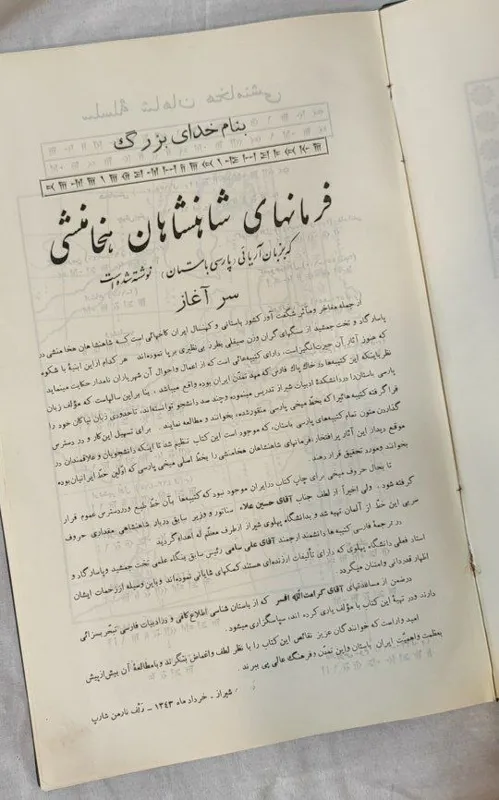 بنام خدای بزرگ
فرمانهای شاهنشاهان هخامنشی
که بزبان آریائی (پارسی باستان) نوشته شده است
سر آغاز
از جمله مفاخر و مآثر شگفت آور کشور باستانی و کهنسال ایران کاخهائی است که شاهنشاهان هخامنشی در
پاسارگاد و تخت جمشید از سنگهای گران وزن صیقلی بطرز بی نظیری برپا نموده‌اند هر کدام از این ابنیهٔ با شکوه
که هنوز آثار آن حیرت‌انگیز است، دارای کتیبه‌هائی است که از اعمال و احوال آن شهریاران نامدار حکایت مینماید
نظر باینکه این کتیبه‌ها در خاک پاک فارس که مهد تمدن ایران بوده واقع میباشد، بنا براین سالهاست که مؤلف زبان
پارسی باستان را در دانشکدهٔ ادبیات شیراز تدریس مینموده و چند صد دانشجو توانسته‌اند، تا حدودی زبان نیاکان خود را
فرا گرفته کتیبه‌هائیرا که بخط میخی پارسی منقور شده، بخوانند و مطالعه نمایند. برای تسهیل این کار و در دسترس
گذاردن متون تمام کتیبه‌های پارسی باستان، که موجود است این کتاب تنظیم شد تا اینکه دانشجویان و علاقمندان در
موقع دیدار این آثار پر افتخار، فرمانهای شاهنشاهان هخامنشی را بخط اصلی میخی پارسی که اولین خط ایرانیان بوده
بخوانند و مورد تحقیق قرار دهند.
تا بحال حروف میخی برای چاپ کتاب در ایران موجود نبود که کتیبه‌ها بآن خط طبع و در دسترس عموم قرار
گرفته شود. ولی اخیراً از لطف جناب آقای حسین علاء، سناتور و وزیر سابق دربار شاهنشاهی مقداری حروف
سربی این خط از آلمان تهیه شد و بدانشگاه پهلوی شیراز از طرف معظم له اهداء گردید.
در ترجمهٔ فارسی کتیبه‌ها دانشمند ارجمند آقای علی سامی رئیس سابق بنگاه علمی تخت جمشید و پاسارگاد و
استاد فعلی دانشگاه پهلوی که دارای تألیفات ارزنده‌ای هستند کمکهای شایانی نموده‌اند و باین وسیله از زحمات ایشان
اظهار قدردانی و امتنان میگردد.
در ضمن از مساعدتهای آقای کرامت‌الله افسر که از باستان شناسی اطلاع کافی و در ادبیات فارسی تبحر بسزائی
دارند و در تهیهٔ این کتاب با مؤلف یاری کرده اند، سپاسگزاری میشود.
امید وار است که خوانندگان عزیز نقائص این کتاب را با نظر لطف و اغماض بنگرند و با مطالعهٔ آن بیش از پیش
بعظمت و اهمیت ایران باستان و این تمدن و فرهنگ عالی پی ببرند.
شیراز - خرداد ماه ۱۳۴۳ - رلف نارمن شارپ